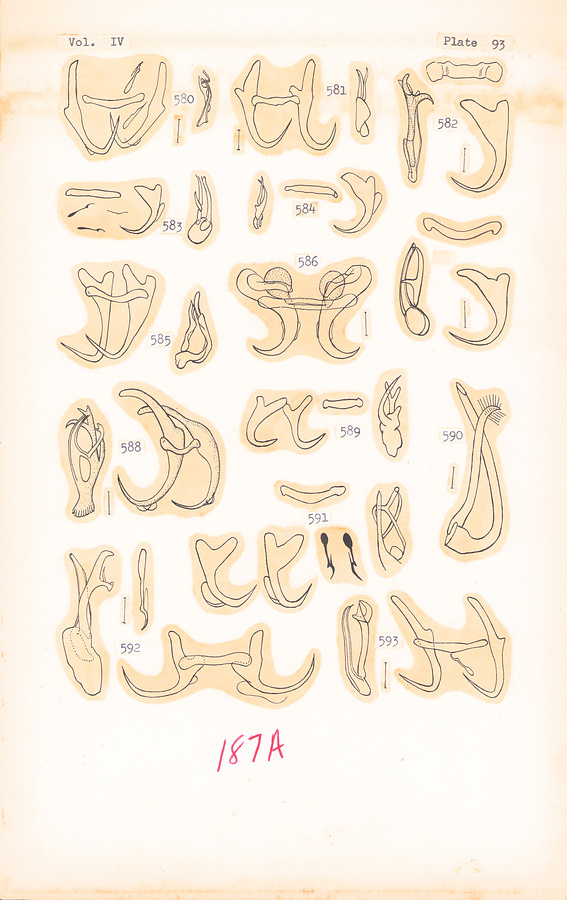 Vol. IV
Plate 93
580
581
582
583
584
585
586
588
589
590
591
592
593
187A